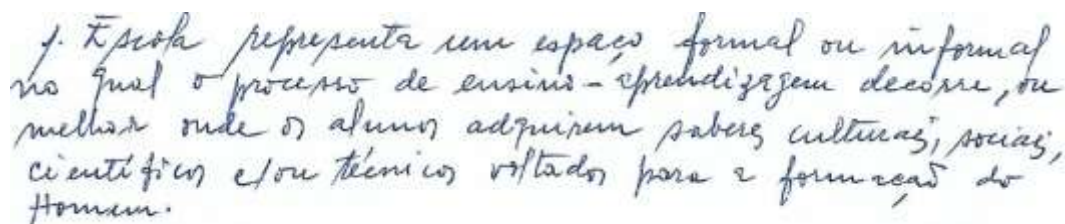 1. Escola representa um espaço formal ou informal
no qual o processo de ensino-aprendizagem decorre, ou
melhor onde os alunos adquirem saberes culturais, sociais,
científicos e/ou técnicos voltados para a formação do
Homem.